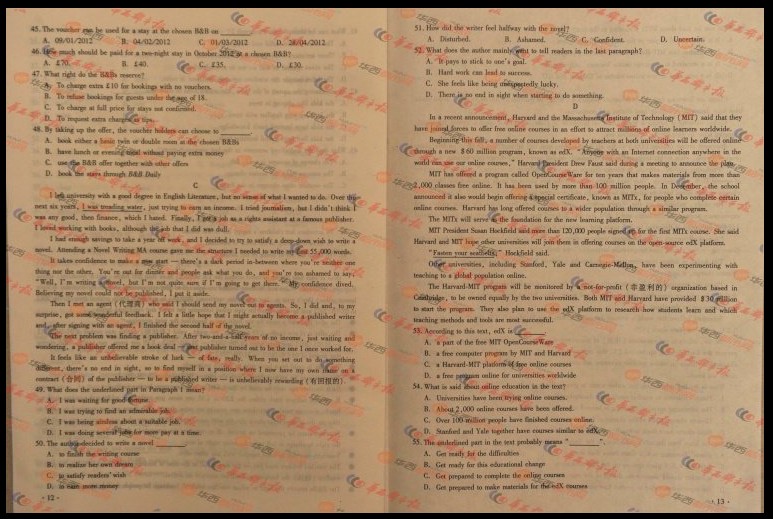 45. The voucher can be used for a stay at the chosen B&B on ________.
A. 09/01/2012 B. 04/02/2012 C. 01/03/2012 D. 28/04/2012
46. How much should be paid for a two-night stay in October 2012 at a chosen B&B?
A. £70. B. £40. C. £35. D. £30.
47. What right do the B&Bs reserve?
A. To charge extra £10 for bookings with no vouchers.
B. To refuse bookings for guests under the age of 18.
C. To charge at full price for stays not confirmed.
D. To request extra charges as tips.
48. By taking up the offer, the voucher holders can choose to ________.
A. book either a basic twin or double room at the chosen B&Bs
B. have lunch or evening meal without paying extra money
C. use the B&B offer together with other offers
D. book the stays through B&B Daily
C
I left university with a good degree in English Literature, but no sense of what I wanted to do. Over the
next six years, I was treading water, just trying to earn an income. I tried journalism, but I didn't think I
was any good, then finance, which I hated. Finally, I got a job as a rights assistant at a famous publisher.
I loved working with books, although the job that I did was dull.
I had enough savings to take a year off work, and I decided to try to satisfy a deep-down wish to write a
novel. Attending a Novel Writing MA course gave me the structure I needed to write my first 55,000 words.
It takes confidence to make a new start — there's a dark period in-between where you're neither one
thing nor the other. You're out for dinner and people ask what you do, and you're too ashamed to say,
"Well, I'm writing a novel, but I'm not quite sure if I'm going to get there." My confidence dived.
Believing my novel could not be published, I put it aside.
Then I met an agent (代理商) who said I should send my novel out to agents. So, I did and, to my
surprise, got some wonderful feedback. I felt a little hope that I might actually become a published writer
and, after signing with an agent, I finished the second half of the novel.
The next problem was finding a publisher. After two-and-a-half years of no income, just waiting and
wondering, a publisher offered me a book deal — that publisher turned out to be the one I once worked for.
It feels like an unbelievable stroke of luck — of fate, really. When you set out to do something
different, there's no end in sight, so to find myself in a position where I now have my own name on a
contract (合同) of the publisher — to be a published writer — is unbelievably rewarding (有回报的).
49. What does the underlined part in Paragraph 1 mean?
A. I was waiting for good fortune.
B. I was trying to find an admirable job.
C. I was being aimless about a suitable job.
D. I was doing several jobs for more pay at a time.
50. The author decided to write a novel ________.
A. to finish the writing course
B. to realize her own dream
C. to satisfy readers' wish
D. to earn more money
· 12 ·
51. How did the writer feel halfway with the novel?
A. Disturbed. B. Ashamed. C. Confident. D. Uncertain.
52. What does the author mainly want to tell readers in the last paragraph?
A. It pays to stick to one's goal.
B. Hard work can lead to success.
C. She feels like being unexpectedly lucky.
D. There is no end in sight when starting to do something.
D
In a recent announcement, Harvard and the Massachusetts Institute of Technology (MIT) said that they
have joined forces to offer free online courses in an effort to attract millions of online learners worldwide.
Beginning this fall, a number of courses developed by teachers at both universities will be offered online
through a new $60 million program, known as edX. "Anyone with an Internet connection anywhere in the
world can use our online courses," Harvard President Drew Faust said during a meeting to announce the plan.
MIT has offered a program called OpenCourseWare for ten years that makes materials from more than
2,000 classes free online. It has been used by more than 100 million people. In December, the school
announced it also would begin offering a special certificate, known as MITx, for people who complete certain
online courses. Harvard has long offered courses to a wider population through a similar program.
The MITx will serve as the foundation for the new learning platform.
MIT President Susan Hockfield said more than 120,000 people signed up for the first MITx course. She said
Harvard and MIT hope other universities will join them in offering courses on the open-source edX platform.
"Fasten your seatbelts," Hockfield said.
Other universities, including Stanford, Yale and Carnegie-Mellon, have been experimenting with
teaching to a global population online.
The Harvard-MIT program will be monitored by a not-for-profit (非盈利的) organization based in
Cambridge, to be owned equally by the two universities. Both MIT and Harvard have provided $30 million
to start the program. They also plan to use the edX platform to research how students learn and which
teaching methods and tools are most successful.
53. According to this text, edX is ________.
A. a part of the free MIT OpenCourseWare
B. a free computer program by MIT and Harvard
C. a Harvard-MIT platform of free online courses
D. a free program online for universities worldwide
54. What is said about online education in the text?
A. Universities have been trying online courses.
B. About 2,000 online courses have been offered.
C. Over 100 million people have finished courses online.
D. Stanford and Yale together have courses similar to edX.
55. The underlined part in the text probably means "________".
A. Get ready for the difficulties
B. Get ready for this educational change
C. Get prepared to complete the online courses
D. Get prepared to make materials for the edX courses
· 13 ·